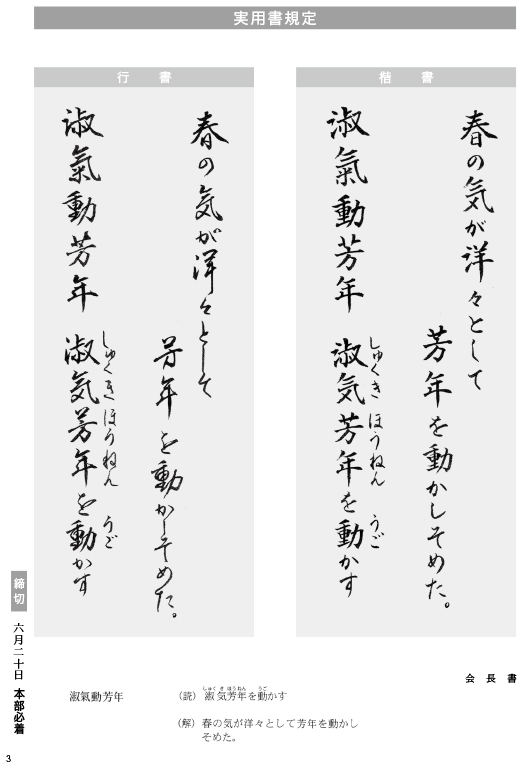 実用書規定
楷書
春の気が洋々として
芳年を動かしそめた。
淑氣動芳年
しゅくき ほうねん うご
淑気芳年を動かす
行書
春の気が洋々として
芳年を動かしそめた。
淑氣動芳年
しゅくき ほうねん うご
淑気芳年を動かす
会長書
締切 六月二十日 本部必着
淑氣動芳年
(読) 淑気芳年を動かす
しゅく き ほうねん うご
(解) 春の気が洋々として芳年を動かし
そめた。
3